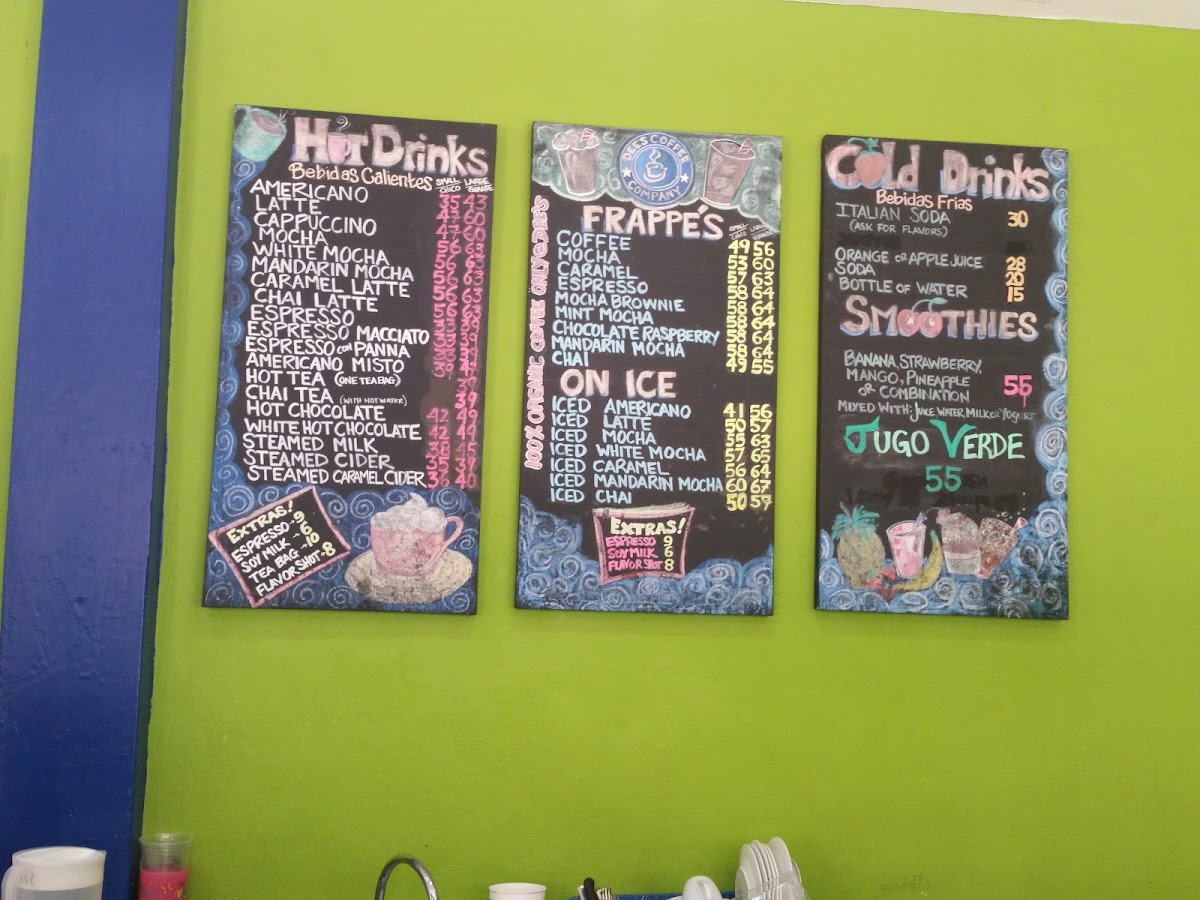 Hot Drinks
Bebidas Calientes
SMALL LARGE
CHICO GRANDE
AMERICANO 35 43
LATTE 47 60
CAPPUCCINO 47 60
MOCHA 56 63
WHITE MOCHA 56 63
MANDARIN MOCHA 56 63
CARAMEL LATTE 56 63
CHAI LATTE 56 63
ESPRESSO
ESPRESSO MACCIATO
ESPRESSO CON PANNA
AMERICANO MISTO
HOT TEA (ONE TEA BAG)
CHAI TEA (WITH HOT WATER)
HOT CHOCOLATE 42 49
WHITE HOT CHOCOLATE 42 49
STEAMED MILK
STEAMED CIDER
STEAMED CARAMEL CIDER 36 40
EXTRAS!
ESPRESSO - 9
SOY MILK - 6
TEA BAG - 10
FLAVOR SHOT - 8
DEE'S COFFEE
COMPANY
FRAPPE'S
100% ORGANIC COFFEE ONLY @ DEE'S
COFFEE 49 56
MOCHA 53 60
CARAMEL 57 63
ESPRESSO 58 64
MOCHA BROWNIE 58 64
MINT MOCHA 58 64
CHOCOLATE RASPBERRY 58 64
MANDARIN MOCHA 58 64
CHAI 49 55
ON ICE
ICED AMERICANO 41 56
ICED LATTE 50 57
ICED MOCHA 55 63
ICED WHITE MOCHA 57 65
ICED CARAMEL 56 64
ICED MANDARIN MOCHA 60 67
ICED CHAI 50 57
EXTRAS!
ESPRESSO 9
SOY MILK 6
FLAVOR SHOT 8
Cold Drinks
Bebidas Frias
ITALIAN SODA 30
(ASK FOR FLAVORS)
ORANGE OR APPLE JUICE 28
SODA 20
BOTTLE OF WATER 15
SMOOTHIES
BANANA, STRAWBERRY,
MANGO, PINEAPPLE 55
OR COMBINATION
MIXED WITH: JUICE WATER, MILK OR YOGURT
JUGO VERDE
55